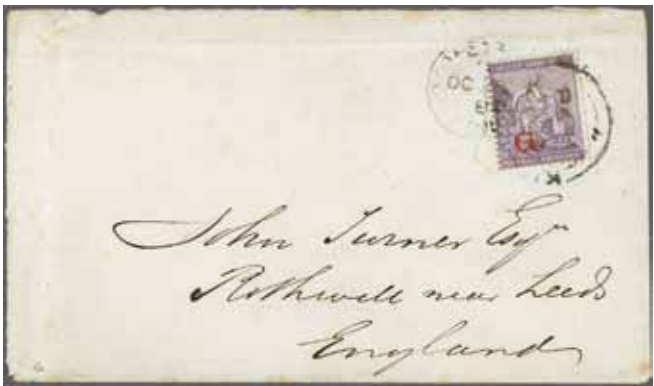 G
John Turner Esqre
Rothwell near Leeds
England